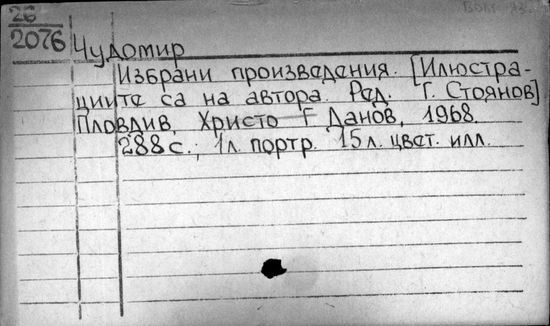 26
2076 Чудомир
Избрани произведения. [Илюстра-
циите са на автора. Ред. Г. Стоянов]
Пловдив, Христо Г Данов, 1968.
288 с.; 1 л. портр. 15 л. цвет. илл.